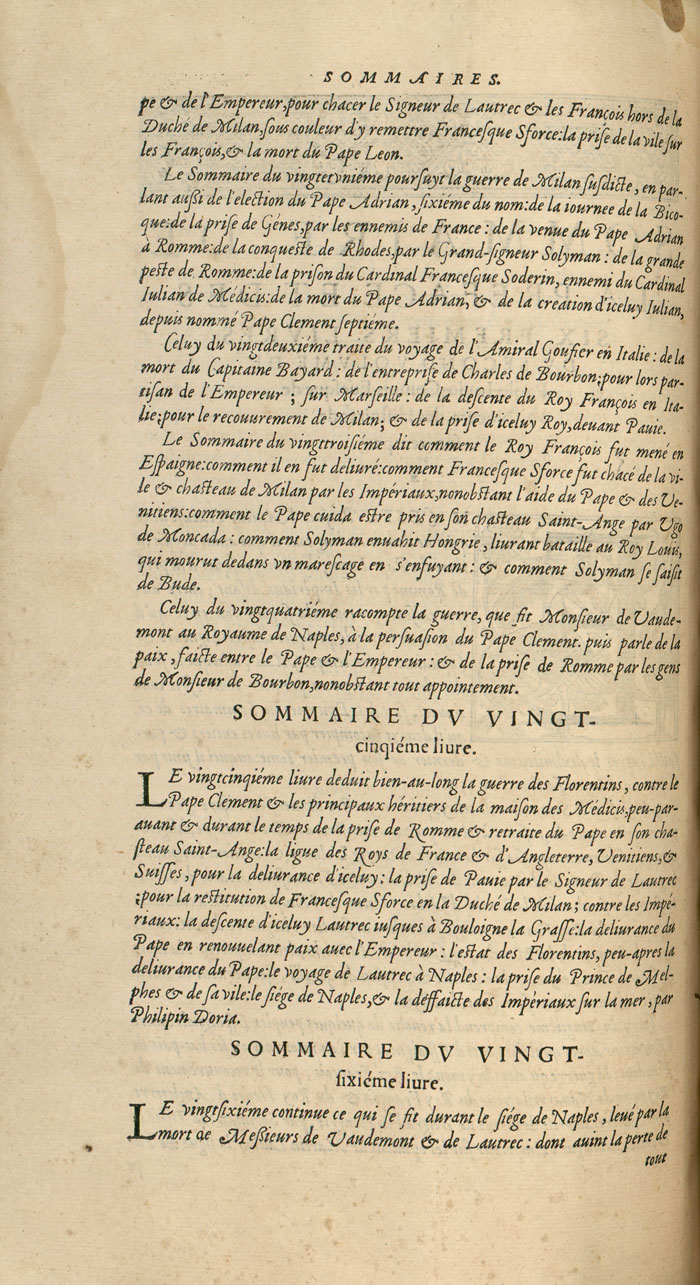 SOMMAIRES.
pe & de l'Empereur,pour chacer le Signeur de Lautrec & les François hors de la
Duché de Milan,sous couleur d'y remettre Francesque Sforce:la prise de la vile sur
les François,& la mort du Pape Leon.
Le Sommaire du vingtetvniéme poursuyt la guerre de Milan susdicte, en par-
lant außi de l'election du Pape Adrian, sixiéme du nom:de la iournee de la Bico-
que:de la prise de Génes,par les ennemis de France : de la venue du Pape Adrian
à Romme:de la conqueste de Rhodes,par le Grand-signeur Solyman : de la grande
peste de Romme:de la prison du Cardinal Francesque Soderin, ennemi du Cardinal
Iulian de Médicis:de la mort du Pape Adrian, & de la creation d'iceluy Iulian,
depuis nommé Pape Clement septiéme.
Celuy du vingtdeuxiéme traite du voyage de l'Amiral Goufier en Italie : de la
mort du Capitaine Bayard : de l'entreprise de Charles de Bourbon;pour lors par-
tisan de l'Empereur ; sur Marseille : de la descente du Roy François en Ita-
lie;pour le recouurement de Milan; & de la prise d'iceluy Roy,deuant Pauie.
Le Sommaire du vingttroisiéme dit comment le Roy François fut mené en
Espaigne:comment il en fut deliuré:comment Francesque Sforce fut chácé de la vi-
le & chasteau de Milan par les Impériaux,nonobstant l'aide du Pape & des Ve-
nitiens:comment le Pape cuida estre pris en son chasteau Saint-Ange par Vgo
de Moncada : comment Solyman enuahit Hongrie, liurant bataille au Roy Louis,
qui mourut dedans vn marescage en s'enfuyant : & comment Solyman se saisit
de Bude.
Celuy du vingtquatriéme racompte la guerre, que fit Monsieur de Vaude-
mont au Royaume de Naples, à la persuasion du Pape Clement. puis parle de la
paix, faicte entre le Pape & l'Empereur : & de la prise de Romme par les gens
de Monsieur de Bourbon,nonobstant tout appointement.
SOMMAIRE DV VINGT-
cinqiéme liure.
LE vingtcinqiéme liure deduit bien-au-long la guerre des Florentins, contre le
Pape Clement & les principaux héritiers de la maison des Médicis,peu-par-
auant & durant le temps de la prise de Romme & retraite du Pape en son cha-
steau Saint-Ange:la ligue des Roys de France & d'Angleterre, Venitiens,&
Suisses, pour la deliurance d'iceluy : la prise de Pauie par le Signeur de Lautrec
;pour la restitution de Francesque Sforce en la Duché de Milan; contre les Impé-
riaux: la descente d'iceluy Lautrec iusques à Bouloigne la Grasse:la deliurance du
Pape en renouuelant paix auec l'Empereur : l'estat des Florentins, peu-apres la
deliurance du Pape:le voyage de Lautrec à Naples : la prise du Prince de Mel-
phes & de sa vile:le siége de Naples,& la deffaicte des Impériaux sur la mer, par
Philipin Doria.
SOMMAIRE DV VINGT-
sixiéme liure.
LE vingtsixiéme continue ce qui se fit durant le siége de Naples, leué par la
mort de Meßieurs de Vaudemont & de Lautrec : dont auint la perte de
tout